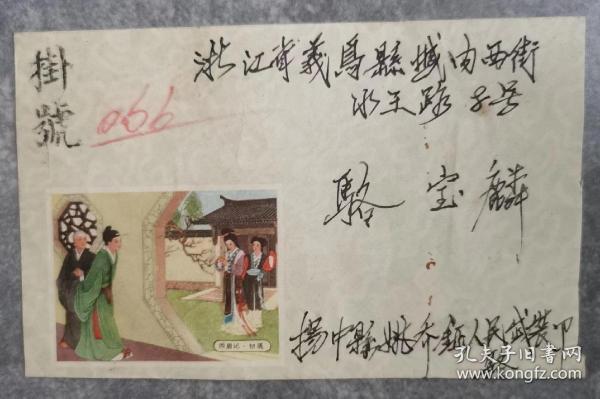 掛號
066
浙江省義烏縣城内西街
水王路子号
駱宝麟
西廂記·初遇
揚中縣姚乔鈺人民武装卩
孔夫子旧书网
www.kongfz.com